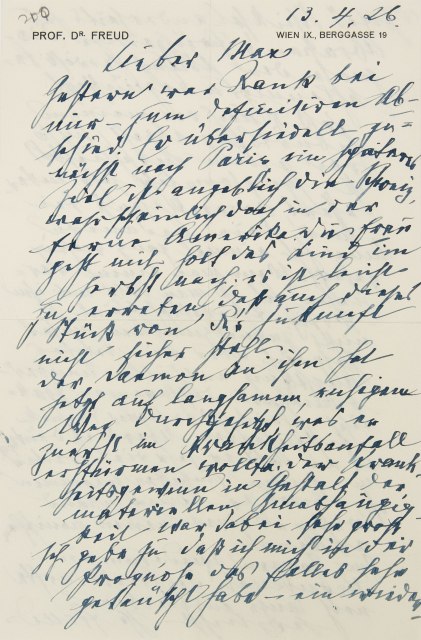 13. 4. 26.
PROF. DR. FREUD
WIEN IX., BERGGASSE 19
Lieber Max
Gestern war Rank bei
mir zum definitiven Ab-
schied. Er übersiedelt zu-
nächst nach Paris, im späteren
Ziel ist angeblich die Schweiz,
wahrscheinlich doch in der
Ferne Amerika. Die Frau
geht mit, holt das Kind im
Herbst nach, es ist leicht
zu erraten daß auch dieses
Stück von Zukunft
nicht sicher steht.
Der Daemon in ihm hat
jetzt auf langsamem, ruhigem
Weg durchgesetzt, was er
zuerst im Krankheitsanfall
erstürmen wollte. Der Krank-
heitsgewinn in Gestalt der
materiellen Unabhängig-
keit war dabei sehr groß
Ich gebe zu, daß ich mich in der
Prognose des Falles sehr
getäuscht habe – ein wieder-